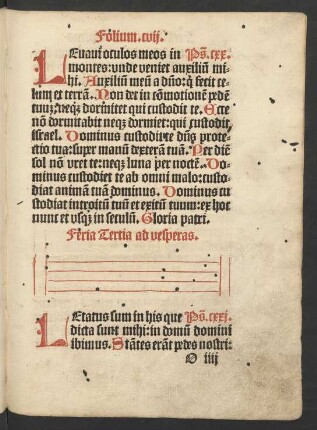 Folium. cvij.
LEvaui oculos meos in Ps. cxx.
montes: unde veniet auxiliũ mi-
hi. Auxiliũ meũ a dño: q̃ fecit ce-
lum et terrã. Non det in cõmotionẽ pedẽ
tuũ: neqʒ dormitet qui custodit te. Ecce
nõ dormitabit neqʒ dormiet: qui custodit
israel. Dominus custodit te dñs prote-
ctio tua: super manũ dexterã tuã. Per diẽ
sol nõ vret te: neqʒ luna per noctẽ. Do-
minus custodiet te ab omni malo: custo-
diat animã tuã dominus. Dominus cu-
stodiat introitũ tuũ et exitũ tuum: ex hoc
nunc et vsqʒ in seculũ. Gloria patri.
Feria Tertia ad vesperas.
LEtatus sum in his que Ps. cxxj.
dicta sunt mihi: in domũ domini
ibimus. Stãtes erãt pedes nostri:
O iiij